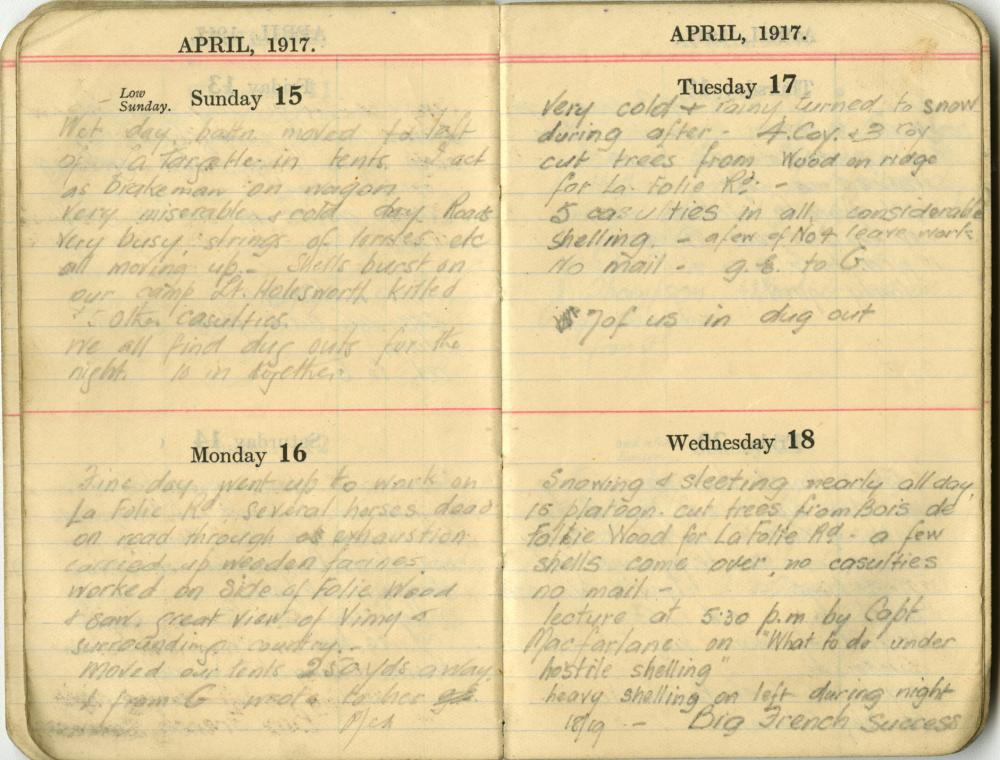 APRIL, 1917.
Low Sunday. Sunday 15
Wet day battn. moved to left
of La Targette in tents. I act
as brakeman on wagon
Very miserable & cold day Roads
very busy strings of lorries etc
all moving up - Shells burst on
our camp Lt. Holesworth killed
5 other casulties.
We all find dug outs for the
night 10 in together
Monday 16
Fine day went up to work on
La Folie Rd. Several horses dead
on road through exhaustion
carried up wooden facines.
worked on side of Folie Wood
& saw great view of Vimy &
surrounding country. -
Moved our tents 250 yds away
1 from G wrote to her
APRIL, 1917.
Tuesday 17
Very cold & rainy turned to snow
during after - 4. Coy. & 3 Coy
cut trees from Wood on ridge
for La Folie Rd. -
5 casulties in all considerable
shelling. - a few of No 4 leave work
No mail - g.g. to G
7 of us in dug out
Wednesday 18
Snowing & sleeting nearly all day,
15 platoon cut trees from Bois de
Folie Wood for La Folie Rd - a few
shells came over, no casulties
no mail -
lecture at 5:30 p.m by Capt
Macfarlane on "What to do under
hostile shelling"
heavy shelling on left during night
18/19 - Big French success